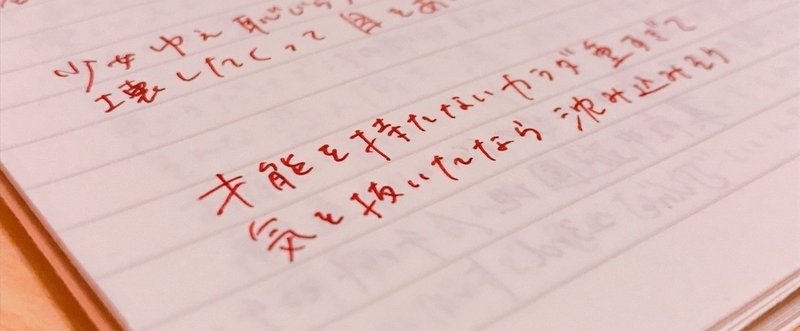 少女ゆえ 恥じら
壊したくって 目をあ
才能を持たないカラダ重すぎて
気を抜いたなら 沈み込みそう